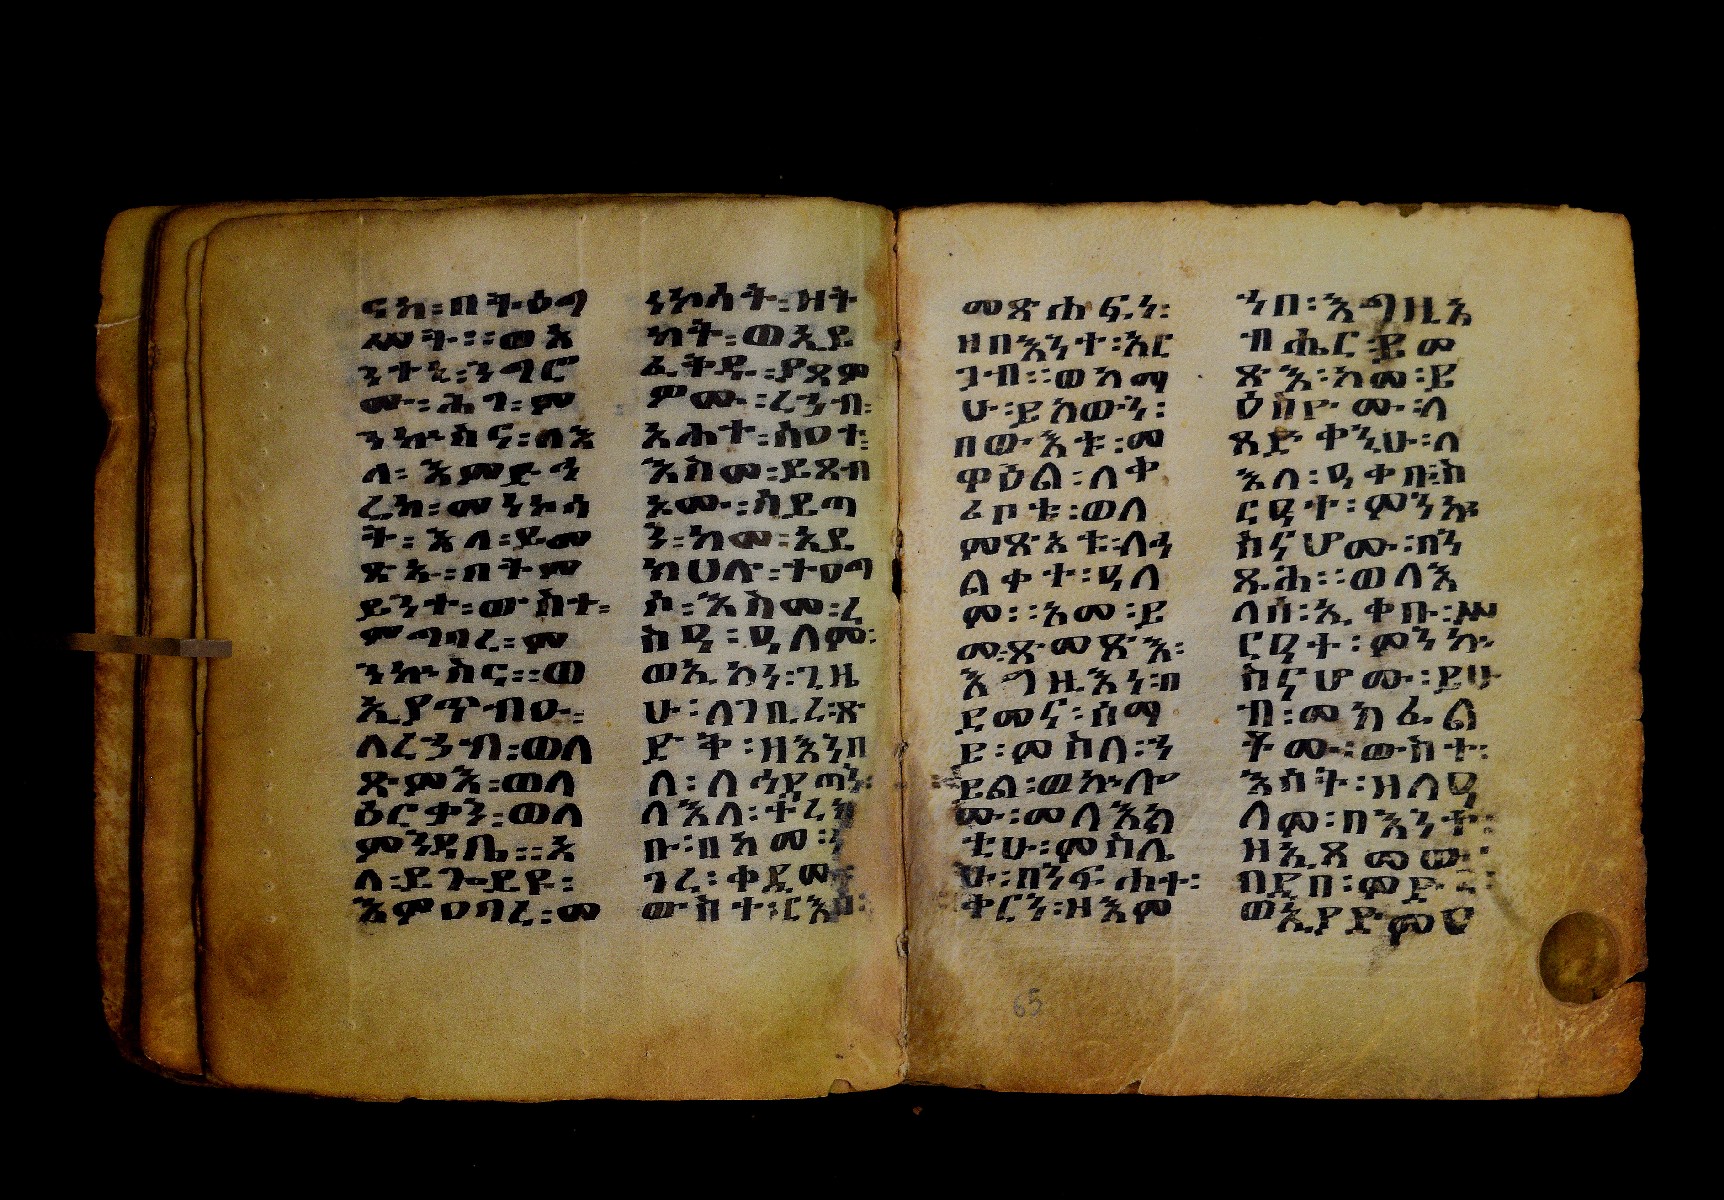 ናከ፡በትዕግ
ሥት፡፡ወእ
ንተኒ፡ንግሮ
ሙ፡ሕገ፡ም
ንኵስና፡ለእ
ለ፡እምድኅ
ረከ፡መነኮሳ
ት፡እለ፡ይመ
ጽኡ፡በትም
ይንተ፡ውስተ፡
ምግባረ፡ም
ንኵስና፡፡ወ
ኢያጥብዑ፡
ለረኃብ፡ወለ
ጽምእ፡ወለ
ዕርቃን፡ወለ
ምንዳቤ፡፡እ
ለ፡ይገድዩ፡
እምዐባረ፡መ
ነኮሳት፡ዝት
ከት፡ወኢይ
ፈትዱ፡ያጻም
ምሙ፡ረኃብ፡
አሐተ፡ሰዐተ፡
እስመ፡ይጸብ
እሙ፡ሰይጣ
ን፡ከመ፡አይ
ክህሉ፡ተዐግ
ሶ፡እስመ፡ረ
ስዒ፡ዒለም፡
ወኢኮነ፡ጊዜ
ሁ፡ለገቢረ፡ጽ
ድቅ፡ዘእንበ
ለ፡ለኅያጣን፡
ለእለ፡ተረክ
ቡ፡በከመ፡
ገረ፡ቀዲሙ
ውስተ፡ርእሰ፡
መጽሐፍነ፡
ዘበእንተ፡አር
ጋብ፡፡ወከማ
ሁ፡ይከውን፡
በውእቱ፡መ
ዋዕል፡ለቀ
ሪቦቱ፡ወለ
መጽአቱ፡ለኅ
ልቀተ፡ዒለ
ም፡፡አመ፡ይ
መ፡ጽመጽእ፡
እግዚእነ፡በ
ደመና፡ሰማ
ይ፡ምስለ፡ኀ
ይል፡ወኵሎ
ሙ፡መላእክ
ቲሁ፡ምስሌ
ሁ፡በንፍሐተ፡
ቀርን፡ዘእም
ኀበ፡እግዚአ
ብሔር፡ይመ
ጽእ፡ከመ፡ይ
ዕስዮሙ፡ለ
ጻድቀኒሁ፡ለ
እለ፡ዒቀቡ፡ሥ
ርዒተ፡ምንኵ
ስናሆሙ፡በን
ጹሕ፡፡ወለእ
ለሰ፡ኢቀቡ፡ሥ
ርዒተ፡ምንኵ
ስናሆሙ፡ይሁ
ብ፡መክፈል
ቶሙ፡ውስተ፡
እሳት፡ዘለዒ
ለም፡በእንተ፡
ዘኢጸመው
በደበ፡ምድር፡
ወኢያድምፁ
65